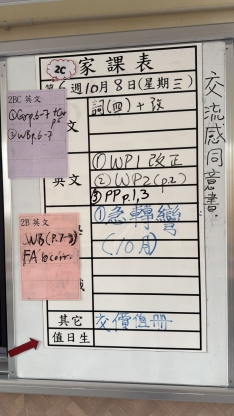 2C 家課表
第 週10月8日(星期三)
2BC 英文
①Grp.6-7
②WBp.6-7
文
詞(四)+改
英文
①WP1改正
②WP2(p.2)
③PP p.1,3
2B 英文
WB(p.7-8)
FA
①急轉彎
(10月)
其它
交價值冊
值日生
交流感同意書